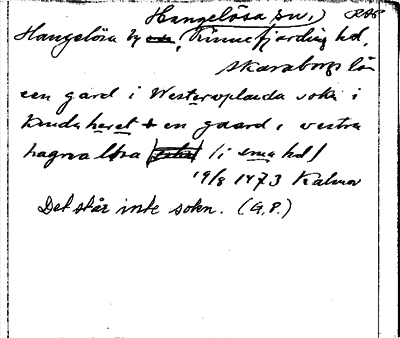 Hangelösa, sn,) RAP
Hangelösa by, Kinnefjärding hd,
Skaraborgs län
een gard i Westerplanda sokn i
kinda heret + en gaard i vestra
hagna lösa /i sma hd/
19/8 1473 Kalmar
Det står inte sokn. (G.P.)